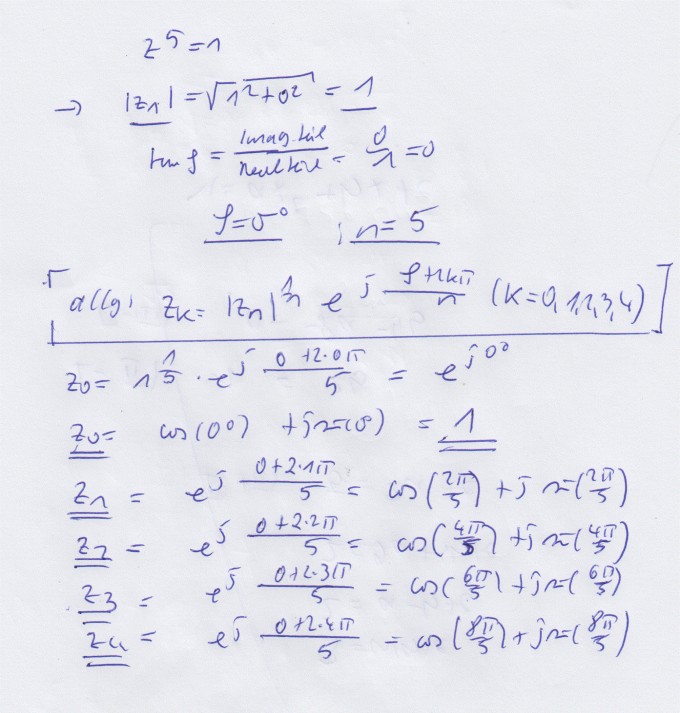 z^5 = 1
→ |z_1| = √(1^2+0^2) = 1
tan φ = Imag.teil / Realteil = 0/1 = 0
φ=0° ; n=5
allg: z_K = |z_n|^(1/n) e^(j (φ+2kπ)/n) (K=0,1,2,3,4)
z_0 = 1^(1/5) · e^(j (0+2·0π)/5) = e^(j0°)
z_0 = cos(0°) + j sin(0°) = 1
z_1 = e^(j (0+2·1π)/5) = cos(2π/5) + j sin(2π/5)
z_2 = e^(j (0+2·2π)/5) = cos(4π/5) + j sin(4π/5)
z_3 = e^(j (0+2·3π)/5) = cos(6π/5) + j sin(6π/5)
z_4 = e^(j (0+2·4π)/5) = cos(8π/5) + j sin(8π/5)